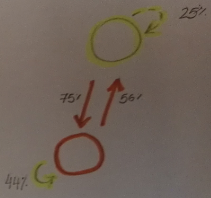 25%
75%
56%
44%